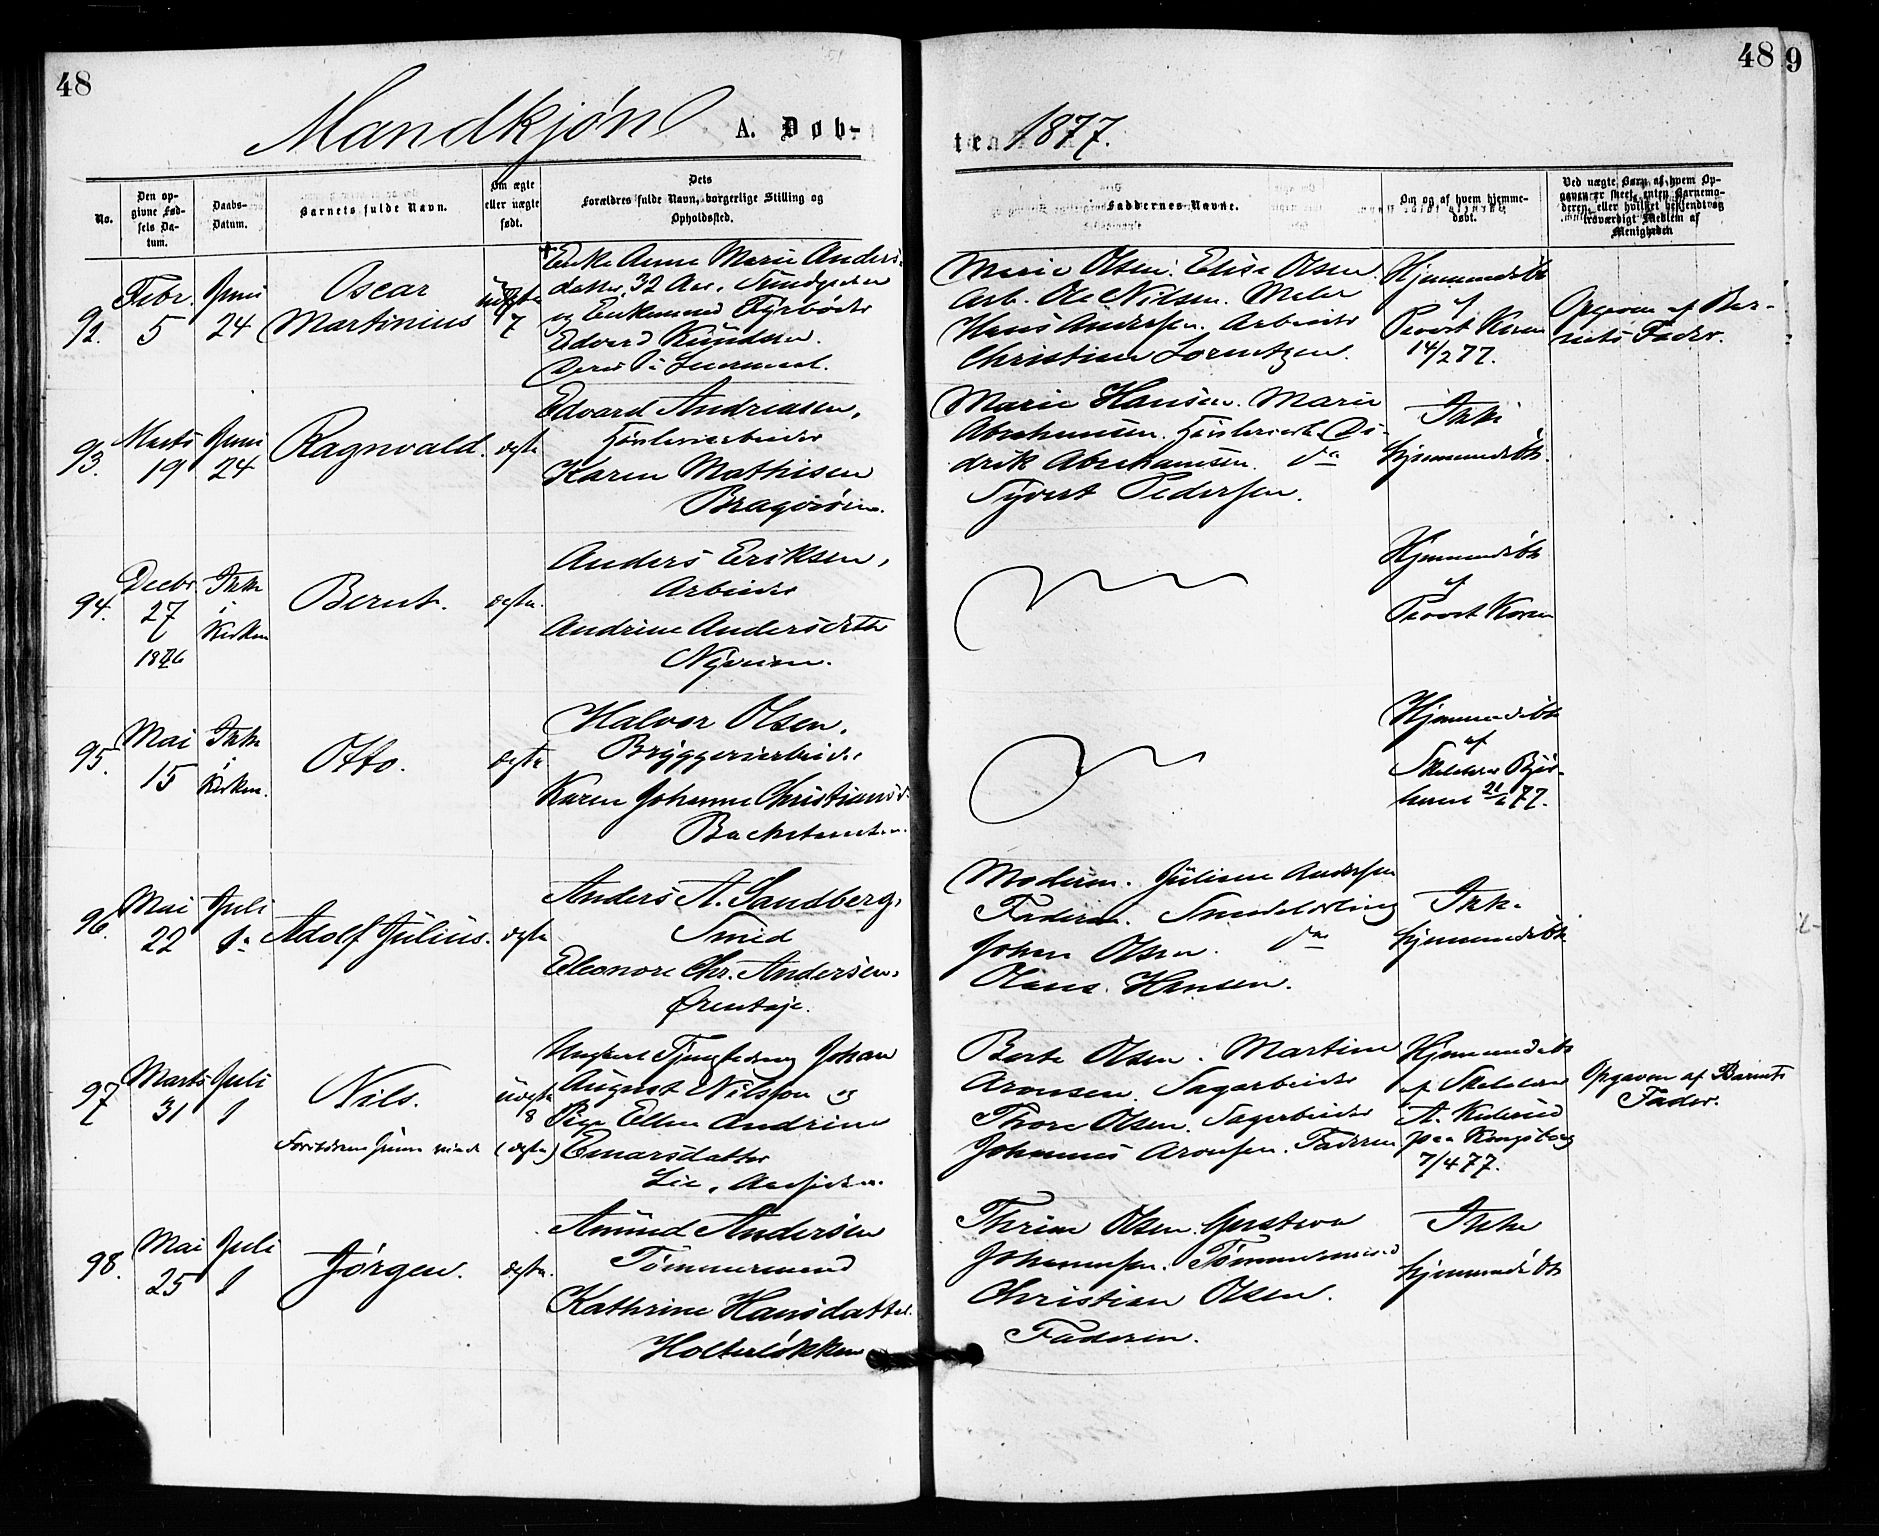 48
48
9
Mandkjøn
A. Døb-
te
1877.
No.
Den op-
givne Fød-
sels Da-
tum.
Daabs-
Datum.
Barnets fulde Navn.
Om ægte
eller uægte
født.
Dets
Forældres fulde Navn, borgerlige Stilling og
Opholdssted.
Faddernes Navne.
Om og af hvem hjemme-
døbt.
Ved uægte Barn af hvem Op-
gaven er skeet, enten Barnemo-
deren, eller hvilket bekjendt og
troværdigt Medlem af
Menigheden
92.
Febr.
5
Juni
24
Oscar
Martinius
uægte
7
Enke Anne Marie Anders-
datter, 32 Aar,
og Enkemand Fyrbøder
Edvard Knudsen.
Marie Olsen. Elise Olsen.
Arb. Ole Nilsen. Maler
Hans Andersen. Arbeider
Christian Lorentzen.
Hjemmedøbt
af
Provst Koren
14/2 77.
Opgaven af Bar-
nets Fader.
93.
Marts
19
Juni
24
Ragnvald.
ægte
Edvard Andreasen,
Karen Mathisen
Bragerøen.
Marie Hansen. Marie
Abrahamsen. Di-
drik Abrahamsen. do
Syvert Pedersen.
Ikke
hjemmedøbt.
94.
Decbr.
27
1876
Ikke
i
Kirken
Bernt.
ægte.
Anders Eriksen,
Arbeider
Andrine Andersdtter
Nyveien.
Hjemmedøbt
af
Provst Koren
95.
Mai
15
Ikke
i
Kirken.
Otto.
ægte
Halvor Olsen,
Bryggeriarbeider
Karen Johanne Christiansd.
Hjemmedøbt
af
77.
96.
Mai
22
Juli
1.
Adolf Julius.
ægte
Anders A. Sandberg,
Smed
Eleonore Chr. Andersen,
Øren
Moderen. Juliane Andersen
Faderen. Smedelærling
Johan Olsen. do
Olaus Hansen.
Ikke
hjemmedøbt
97
Marts
31
Juli
1
Nils.
Forældrene siden viede
uægte
8
(ægte)
Ungkarl Johan
August Nilsson og
Pige Ellen Andrine
Enarsdatter
Lie, Aassiden.
Berte Olsen. Martine
Aronsen. Sagarbeider
Thore Olsen. Sagarbeider
Johannes Aronsen. Faderen
Hjemmedøbt
af
A.
paa Kongsberg
7/4 77.
Opgaven af Barnets
Fader.
98.
Mai
25
Juli
1
Jørgen.
ægte.
Amund Andersen
Tømmermand
Kathrine Hansdatter.
Holterløkken
Thrine Olsen. Gustava
Johannesen. Tømmermand
Christian Olsen.
Faderen.
Ikke
hjemmedøbt